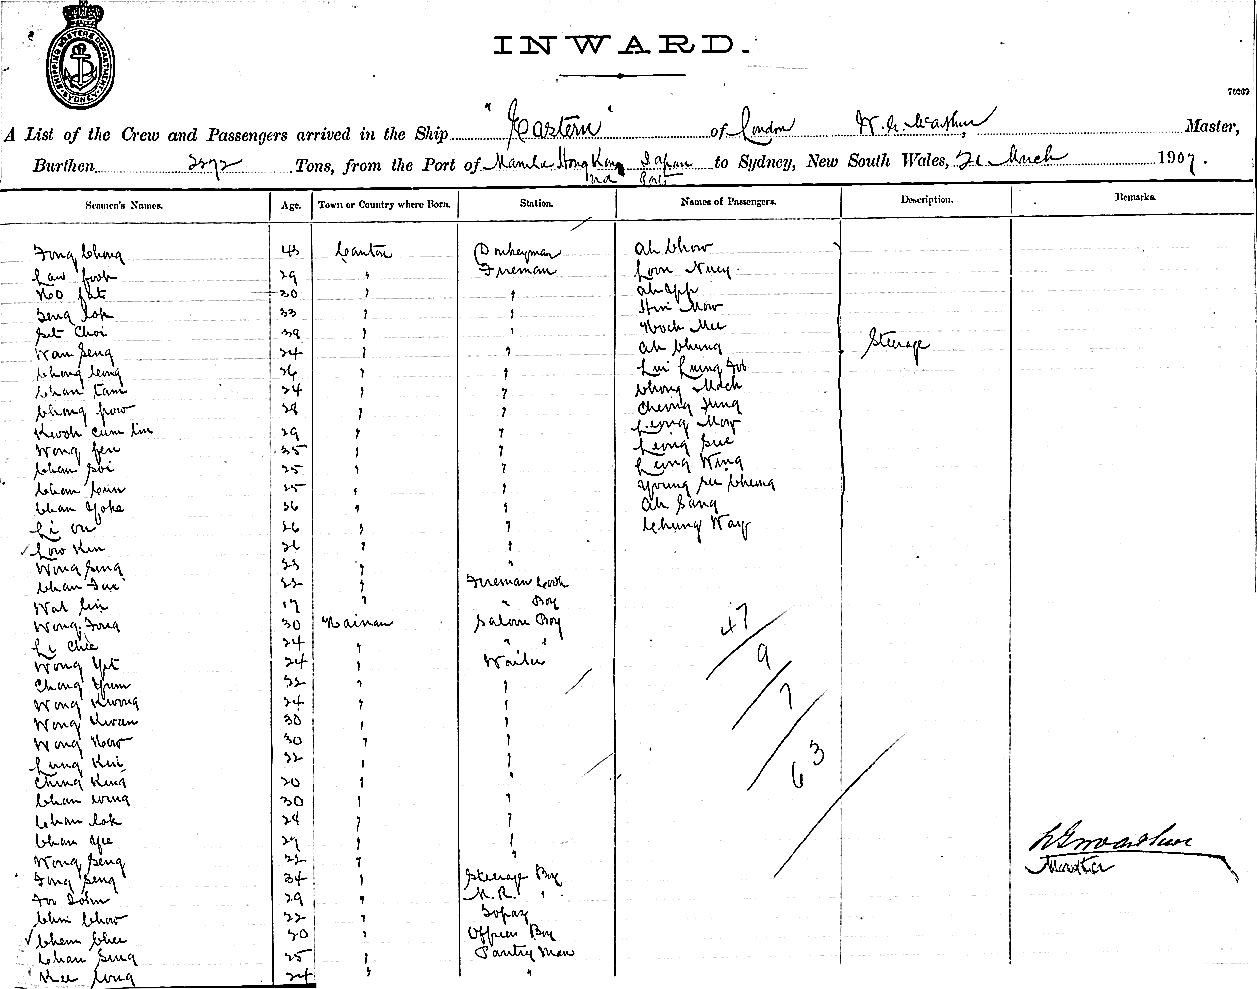 SHIPPING MASTERS DEPARTMENT SYDNEY
INWARD.
70282
A List of the Crew and Passengers arrived in the Ship "Eastern" of London W. G. McArthur Master,
Burthen 2272 Tons, from the Port of Manila Hong Kong Japan to Sydney, New South Wales, 21 March 1907.
Seamen's Names. Age. Town or Country where Born. Station. Names of Passengers. Description. Remarks.
Fong Chong 43 Canton Donkeyman Ah Chow
Law Fook 29 " Fireman Loon
Ko Fat 30 " " Ah App
Seng Lok 33 " " How
Choi 39 " " Mee
Wan Seng 24 " " Ah Chung Steerage
Chong Leong 26 " " Lui
Chan Tam 24 " " Chong
Chong Pow 28 " " Cheong
Kwok Cum Lin 29 " " Leong
Wong 35 " " Leong Sue
Chan Soi 25 " " Leong Wing
Chan 25 " " Young
Chan Yoke 36 " " Ah Sang
Li On 26 " " Chung Way
Low Ken 26 " "
Wong Sing 33 " "
Chan " Fireman Cook
Wat Lin 19 " " Boy
Wong Fong 30 Hainan Saloon Boy
Li Chee 24 " " "
Wong Yet 24 " Waiter
Chong Yum 22 " "
Wong Kwong 24 " "
Wong Kwan 30 " "
Wong Kow 30 " "
Lung Kui 22 " "
Ching King 20 " "
Chan Wing 30 " "
Chan Lok 24 " "
Chan Yee 29 " "
Wong Seng 22 " "
Fong Seng 34 " Steerage Boy
John 29 " "
Chin Chow 22 " Topaz
Chem Chee 20 " Officers Boy
Chan Sing 25 " Pantry Man
Kee Long 24 " "
47
9
7
63
W G McArthur
Master